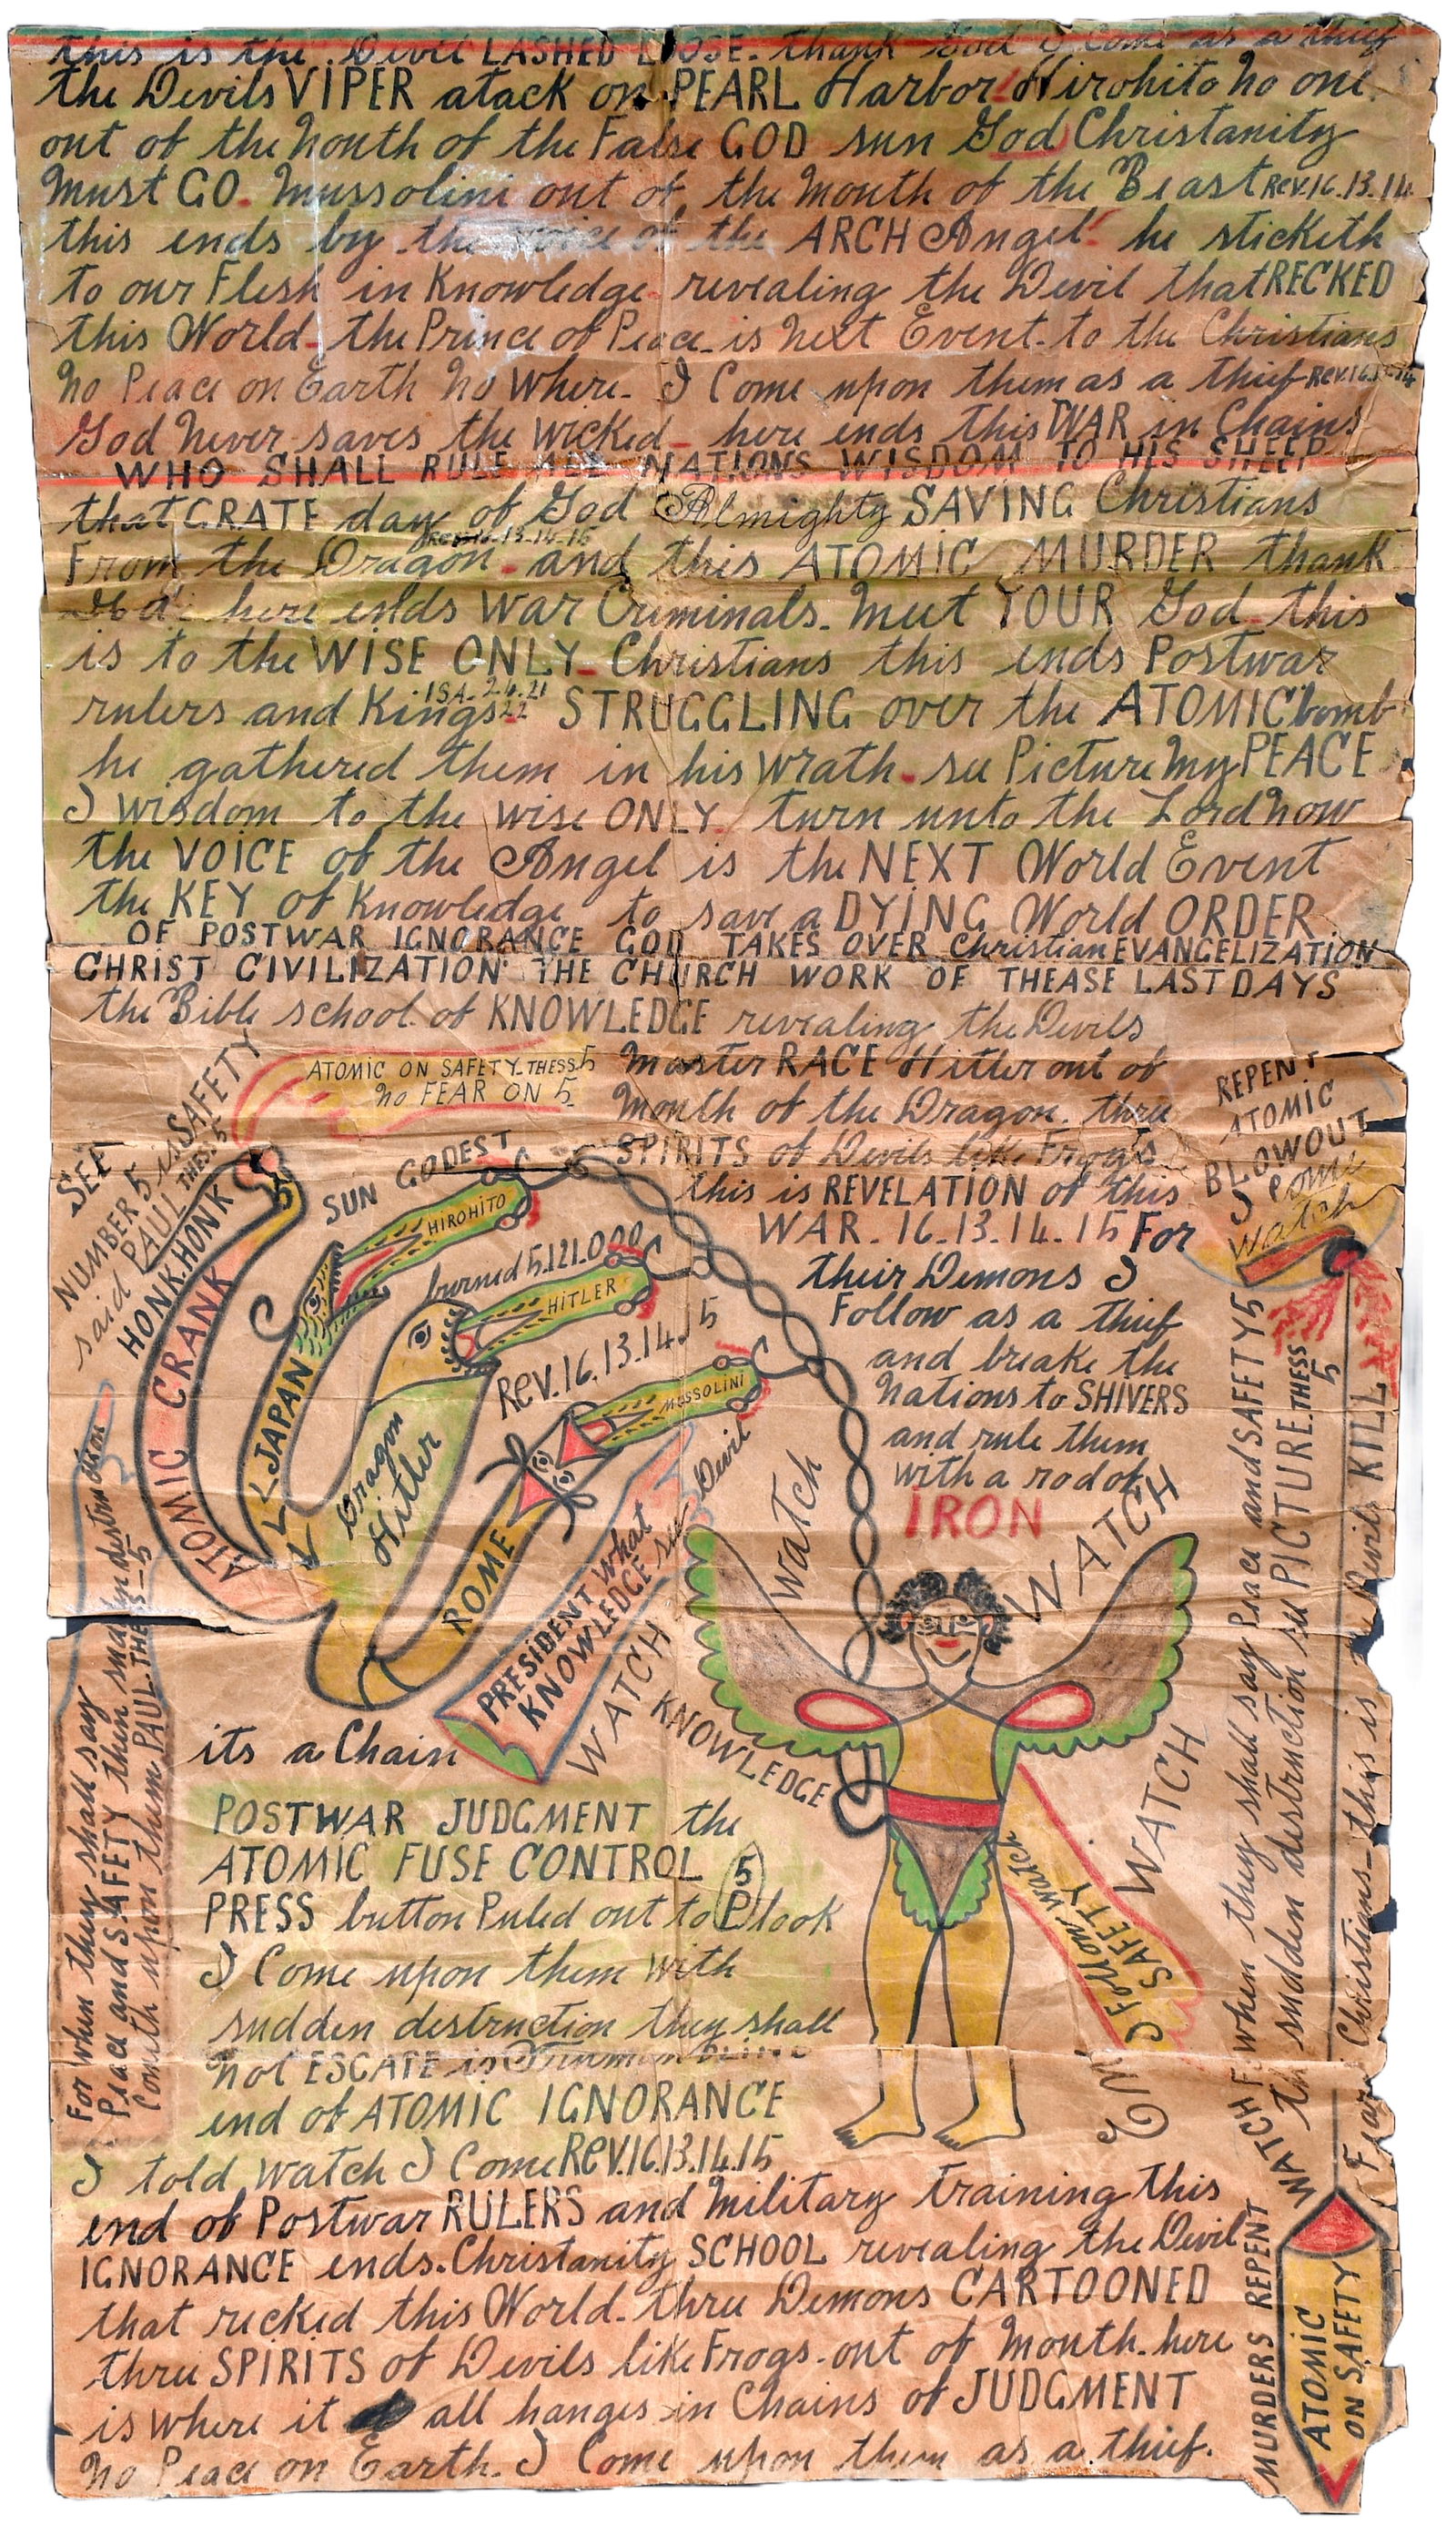 this is the Devil LASHED LOOSE. thank God I Come as a thief
the Devils VIPER atack on PEARL Harbor Hirohito no one
out of the Mouth of the False GOD sun God Christanity
Must GO. Mussolini out of the Mouth of the Beast REV.16.13.14
this ends by the voice of the ARCH Angel he sticketh
to our Flesh in Knowledge revealing the Devil that RECKED
this World. the Prince of Peace is Next Event to the Christians
No Peace on Earth No Where. I Come upon them as a thief REV.16.
God Never saves the WICKED here ends this WAR in Chains
WHO SHALL RULE ALL NATIONS WISDOM TO HIS SHEEP
that GRATE day of God Almighty SAVING Christians
REV.16.13.14.15
From the Dragon and this ATOMIC MURDER thank
God here ends War Criminals. Meet YOUR God this
is to the WISE ONLY Christians this ends Postwar
ISA. 24.21
22
rulers and Kings STRUGGLING over the ATOMIC bomb
he gathered them in his Wrath see Picture My PEACE
I wisdom to the wise ONLY turn unto the Lord Now
the VOICE of the Angel is the NEXT World Event
the KEY of Knowledge to save a DYING World ORDER
OF POSTWAR IGNORANCE GOD TAKES OVER Christian EVANGELIZATION
CHRIST CIVILIZATION THE CHURCH WORK OF THEASE LAST DAYS
the Bible school of KNOWLEDGE revealing the Devils
Master RACE Hitler out of
Mouth of the Dragon. thru
SPIRITS of Devils like Frogs
this is REVELATION of this
WAR. 16.13.14.15 For
their Demons I
Follow as a thief
and breake the
Nations to SHIVERS
and rule them
with a rod of
IRON
ATOMIC ON SAFETY THESS 5
No FEAR ON 5
SEE
NUMBER 5 is SAFETY
said PAUL THES. 5
HONK.HONK
ATOMIC CRANK
5
SUN GODEST
HIROHITO
JAPAN
burned 5.121.000
HITLER
Dragon
Hitler
REV.16.13.14.15
MUSSOLINI
ROME
PRESIDENT what
KNOWLEDGE see Devil
WATCH
KNOWLEDGE
watch
WATCH
WATCH
I Follow watch
SAFETY
REPENT
ATOMIC
BLOWOUT
I come
watch
For when they shall say
Peace and SAFETY then sudden destruction
Cometh upon them PAUL.THES_5
its a Chain
POSTWAR JUDGMENT the
ATOMIC FUSE CONTROL
5
PRESS button Puled out to P look
I Come upon them with
sudden destruction they shall
Not ESCAPE is
end of ATOMIC IGNORANCE
I told watch I Come REV.16.13.14.15
end of Postwar RULERS and Military training this
IGNORANCE ends. Christanity SCHOOL revealing the Devil
that recked this World. thru Demons CARTOONED
thru SPIRITS of Devils like Frogs. out of Mouth. here
is where it all hanges in Chains of JUDGMENT
No Peace on Earth. I Come upon them as a thief.
WATCH F. when they shall say Peace and SAFETY 5
WATCH sudden destruction see PICTURE. THESS 5
Fear Christians this is Devil KILL
MURDERS REPENT
ATOMIC
ON SAFETY